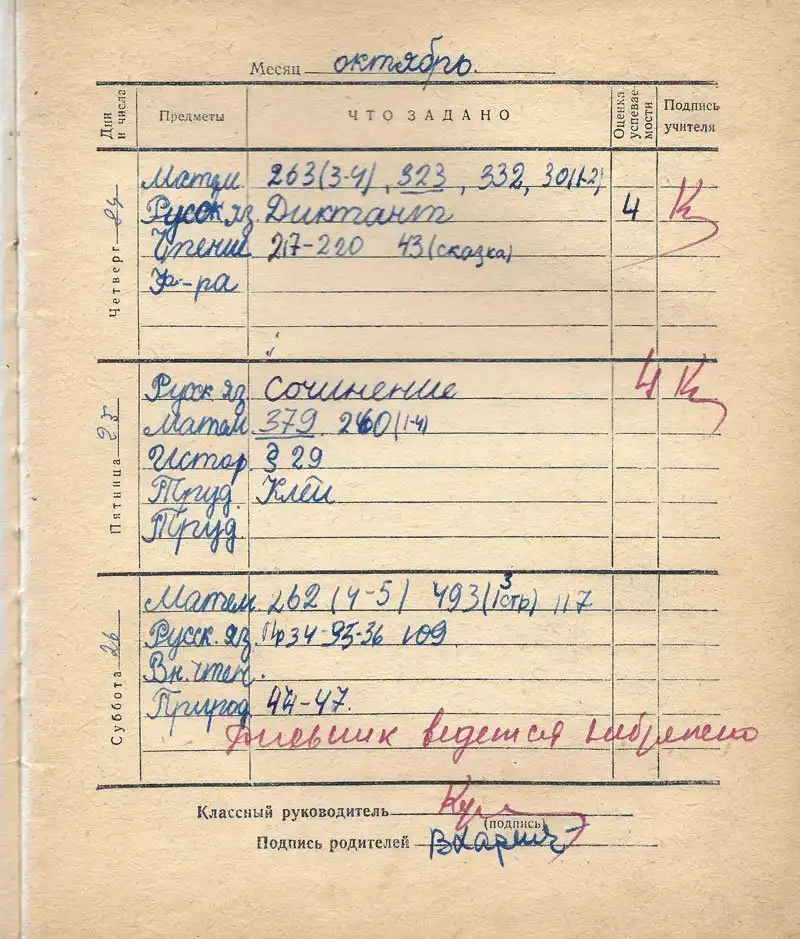 Месяц октябрь.
Дни и числа Предметы ЧТО ЗАДАНО Оценка успеваемости Подпись учителя
Четверг 24
Матем. 263(3-4), 323, 332, 301(1-2)
Русск яз. Диктант 4
Чтение 217-220 43(сказка)
Ф-ра
Пятница 25
Русск. яз. Сочинение 4
Матем 379 260(1-4)
Истор § 29
Труд. Клей
Труд.
Суббота 26
Матем. 262 (4-5) 493(3 стр) 117
Русск. яз. Пр 34-35-36 109
Вн. чтен.
Природ 44-47.
Дневник ведется небрежно
Классный руководитель
(подпись)
Подпись родителей